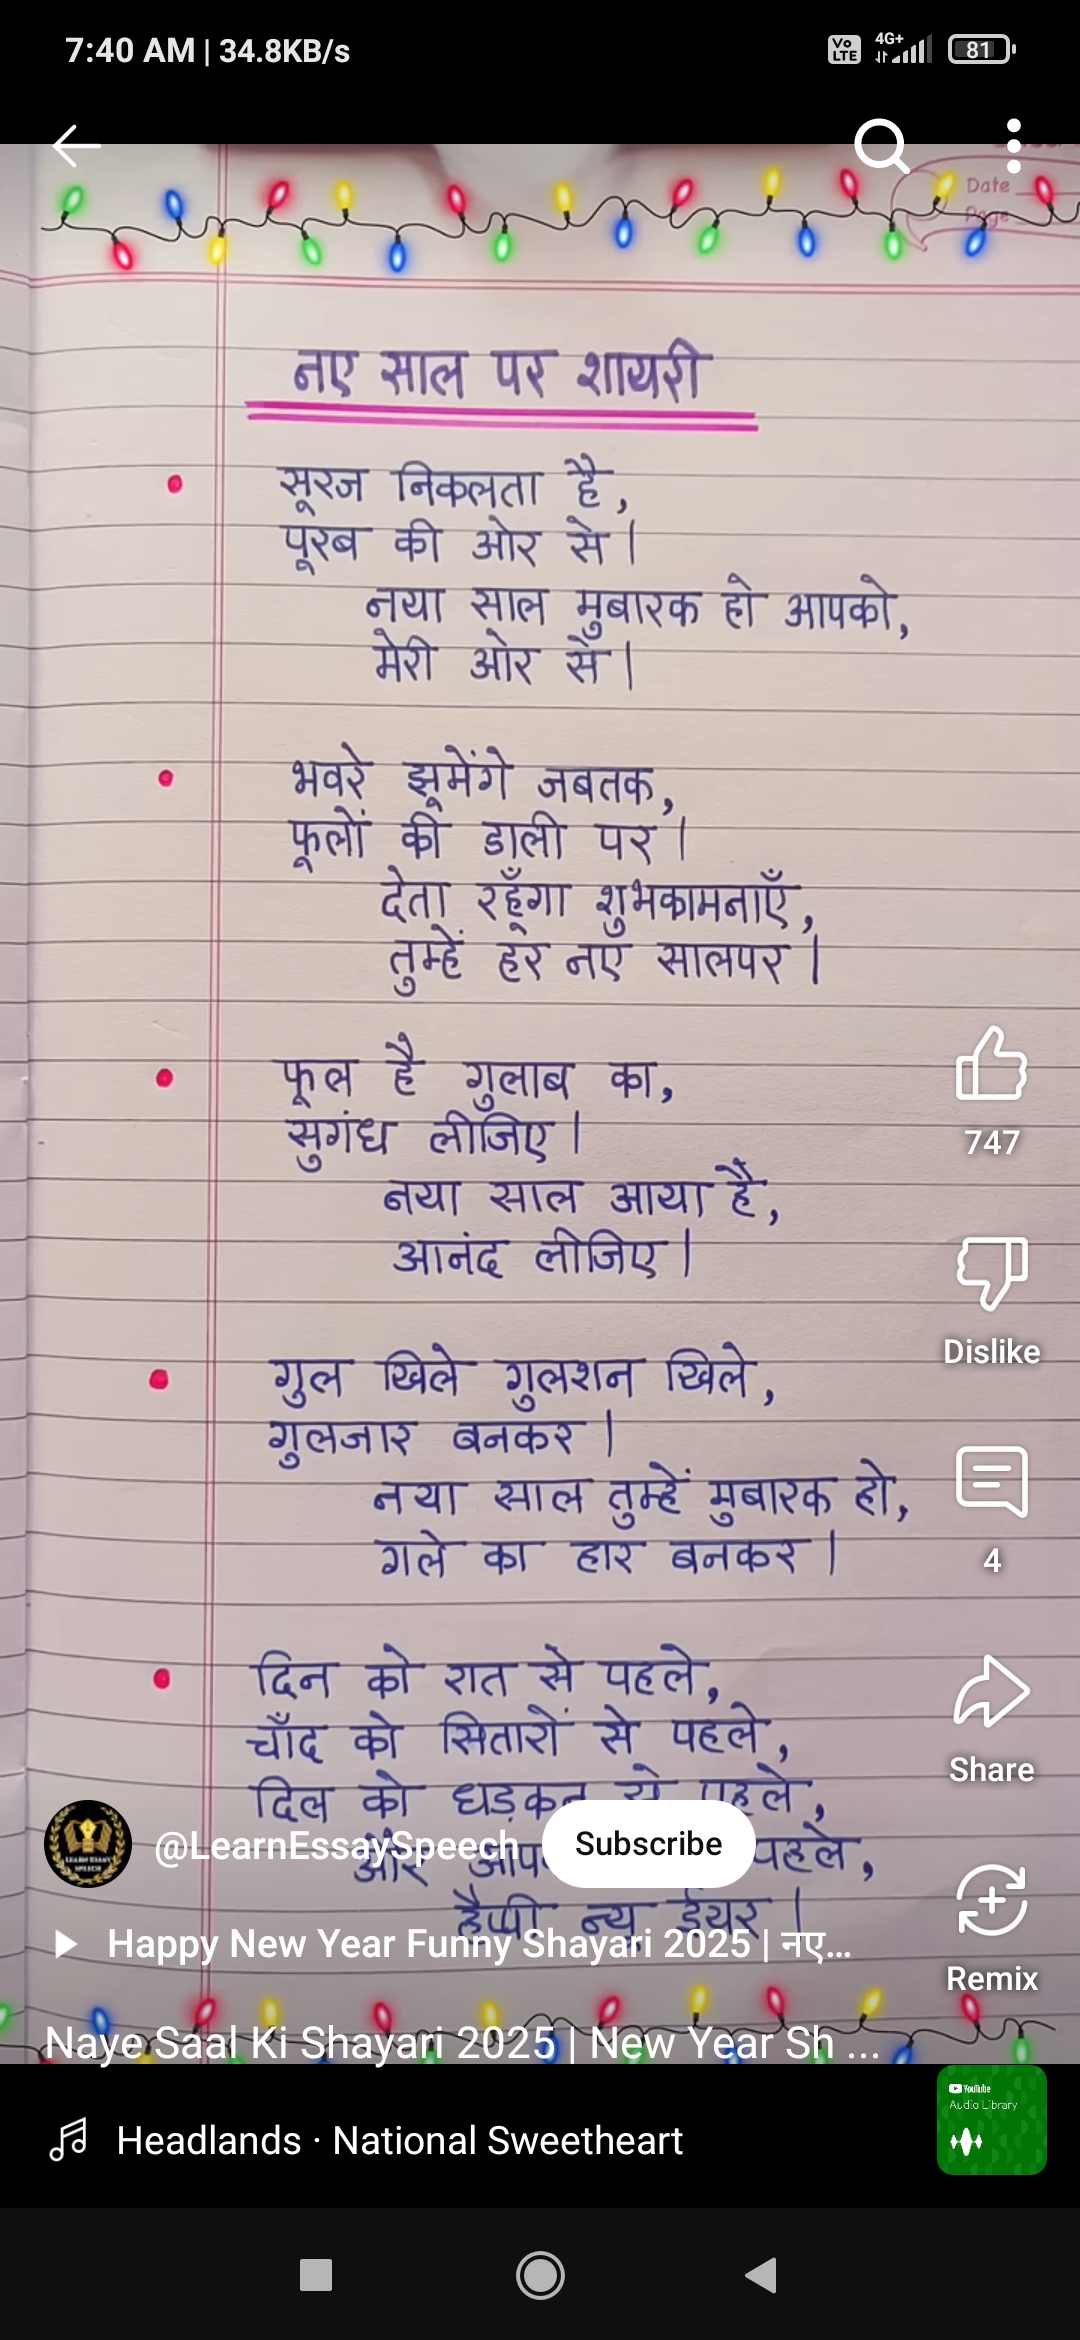 7:40 AM | 34.8KB/s
Vo LTE 4G+ 81
Date
Page
नए साल पर शायरी
सूरज निकलता है,
पूरब की ओर से।
नया साल मुबारक हो आपको,
मेरी ओर से।
भवरे झूमेंगे जबतक,
फूलों की डाली पर।
देता रहूँगा शुभकामनाएँ,
तुम्हें हर नए सालपर।
फूल है गुलाब का,
सुगंध लीजिए।
नया साल आया है,
आनंद लीजिए।
गुल खिले गुलशन खिले,
गुलजार बनकर।
नया साल तुम्हें मुबारक हो,
गले का हार बनकर।
दिन को रात से पहले,
चाँद को सितारों से पहले,
दिल को धड़कन से पहले,
और पहले,
हैप्पी न्यू ईयर।
747
Dislike
4
Share
Remix
@LearnEssaySpeech Subscribe
Happy New Year Funny Shayari 2025 | नए...
Naye Saal Ki Shayari 2025 | New Year Sh ...
Headlands · National Sweetheart
YouTube
Audio Library